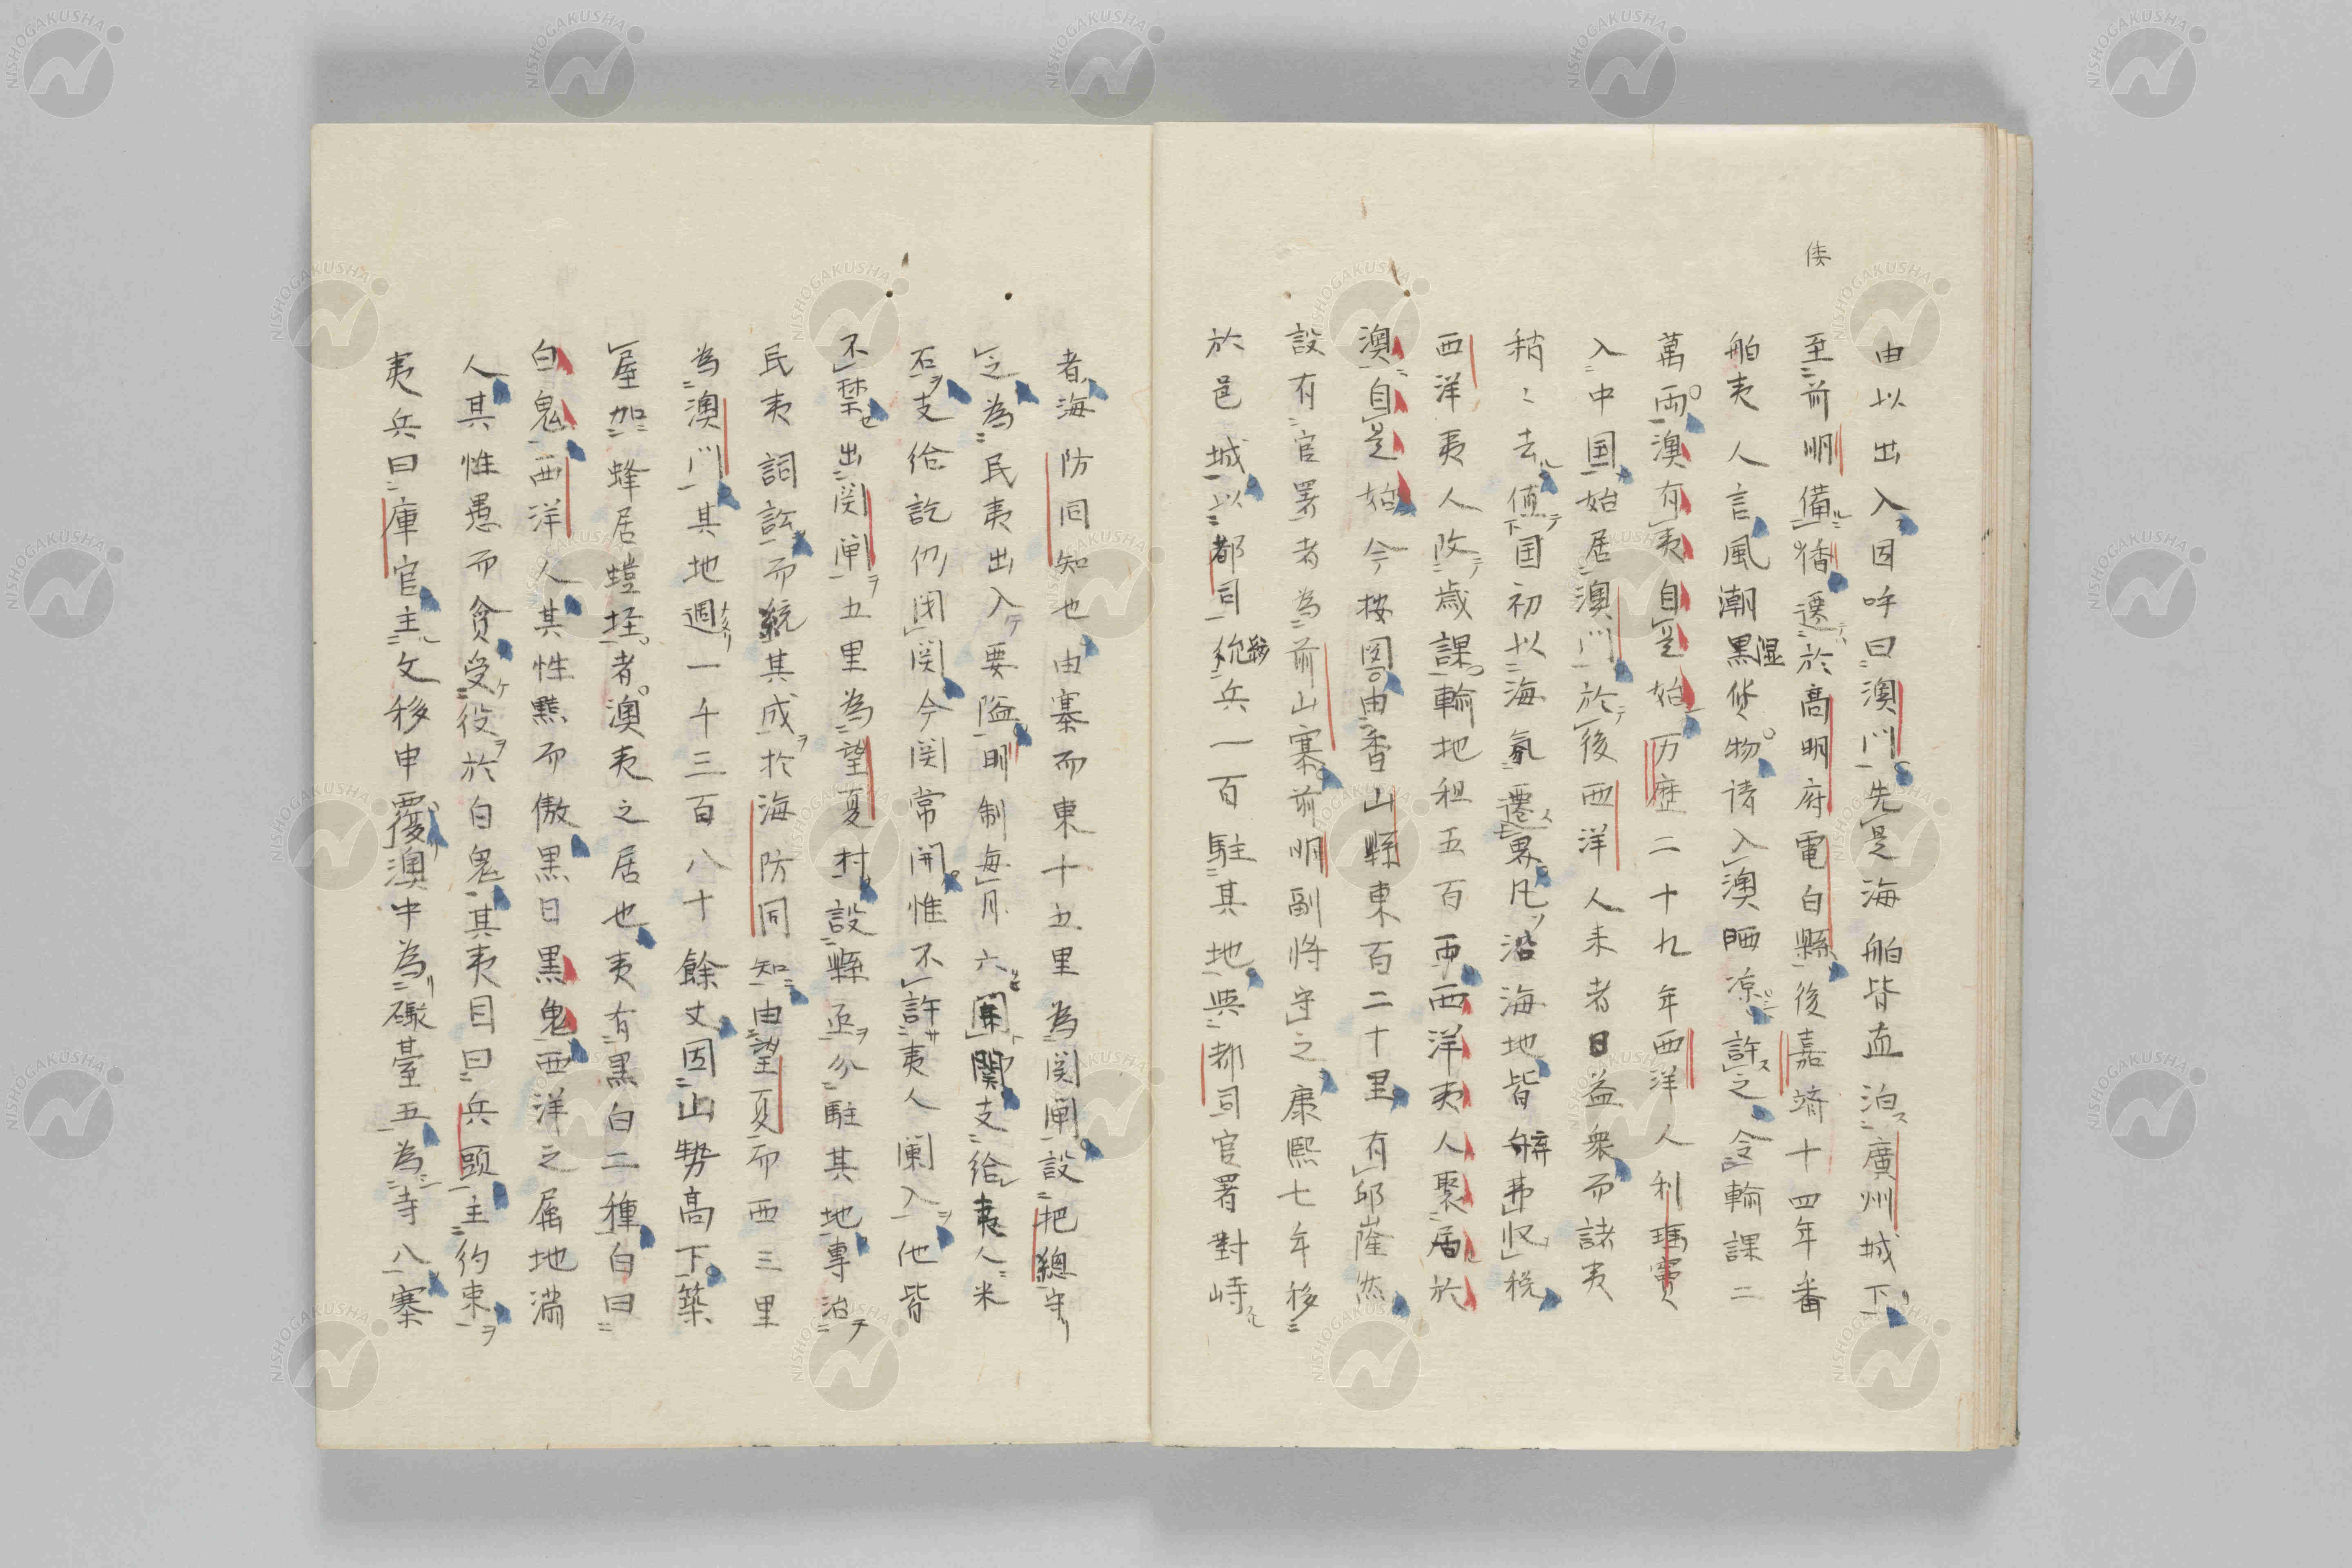 倭
由以出入因呼曰澳門先是海舶皆直泊廣州城下
至前明備倭遷於高明府電白縣後嘉靖十四年番
舶夷人言風潮濕貨物请入澳晒凉許之令輸課二
萬両澳有夷自是始万歴二十九年西洋人利瑪竇
入中国始居澳門於後西洋人来者日益衆而諸夷
稍〻去値国初以海氛遷界凡沿海地皆弃収税
西洋夷人改歳課輸地租五百両西洋夷人聚居於
澳自是始今按図由香山縣東百二十里有邱隆然
設有官署者為前山寨前明副將守之康熙七年移
於邑城以都司統兵一百駐其地與都司官署對峙
者海防同知也由寨而東十五里為関閘設把總守
之為民夷出入要隘明制毎月六開關支給夷人米
石支給訖仍閉関今関常開惟不許夷人闌入他皆
不禁出関閘五里為望夏村設縣丞分駐其地專治
民夷詞訟而統其成於海防同知由望夏而西三里
為澳門其地週一千三百八十餘丈因山勢高下築
屋如蜂居螘垤者澳夷之居也夷有黒白二種白曰
白鬼西洋人其性黠而傲黒曰黒鬼西洋之属地満
人其性愚而貪受役於白鬼其夷目曰兵頭主約束
夷兵曰庫官主文移申覆澳中為礟臺五為寺八寨
NISHOGAKUSHA